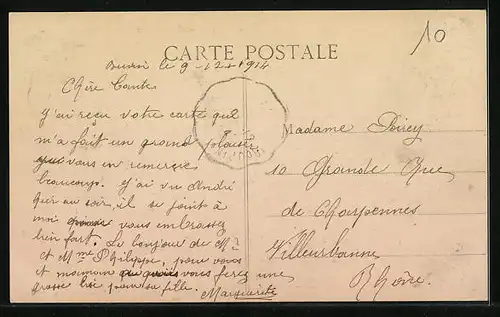 10
CARTE POSTALE
le 9-12-1914
Chère Tante
J'ai reçu votre carte qui
m'a fait un grand plaisir
vous en remercie
beaucoup. J'ai vu André
hier au soir, il se joint à
moi vous embrasser
bien fort. Le bonjour de Mr
et Mme Philippe, pour vous
et maman vous ferez une
grosse bise pour sa fille.
Marguerite
Madame
10 Grande Rue
de Charpennes
Villeurbanne
Rhône.